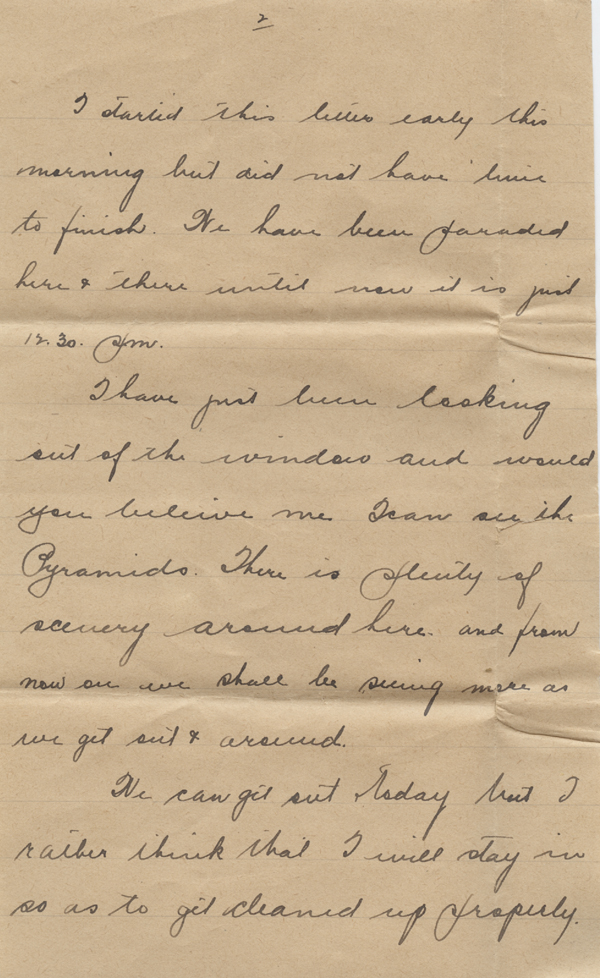 2
I started this letter early this
morning but did not have time
to finish. We have been paraded
here & there until now it is just
12.30. pm.
I have just been looking
out of the window and would
you beleive me I can see the
Pyramids. There is plenty of
scenery around here. and from
now on we shall be seeing more as
we get out & around.
We can get out today but I
rather think that I will stay in
so as to get cleaned up properly.